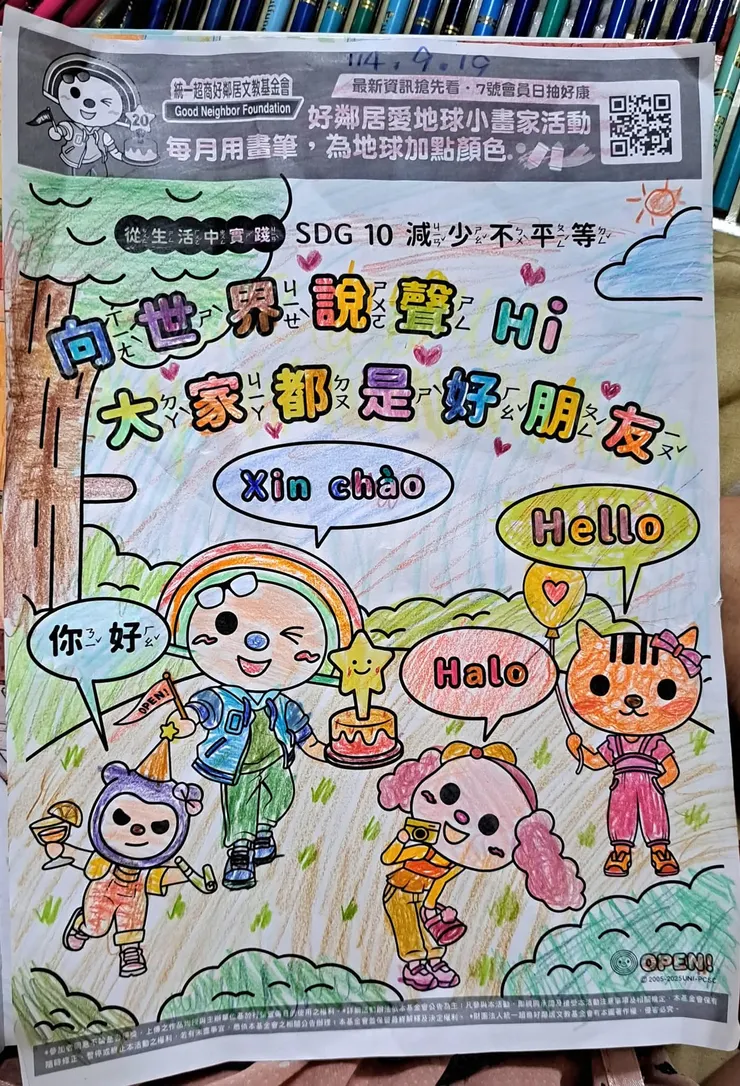 114.9.19
統一超商好鄰居文教基金會
Good Neighbor Foundation
20
最新資訊搶先看，7號會員日抽好康
好鄰居愛地球小畫家活動
每月用畫筆，為地球加點顏色
從生活中實踐 SDG 10 減少不平等
向世界說聲 Hi
大家都是好朋友
Xin chào
Hello
你好
Halo
OPEN!
OPEN!
© 2005-2025 UNI-PCSC